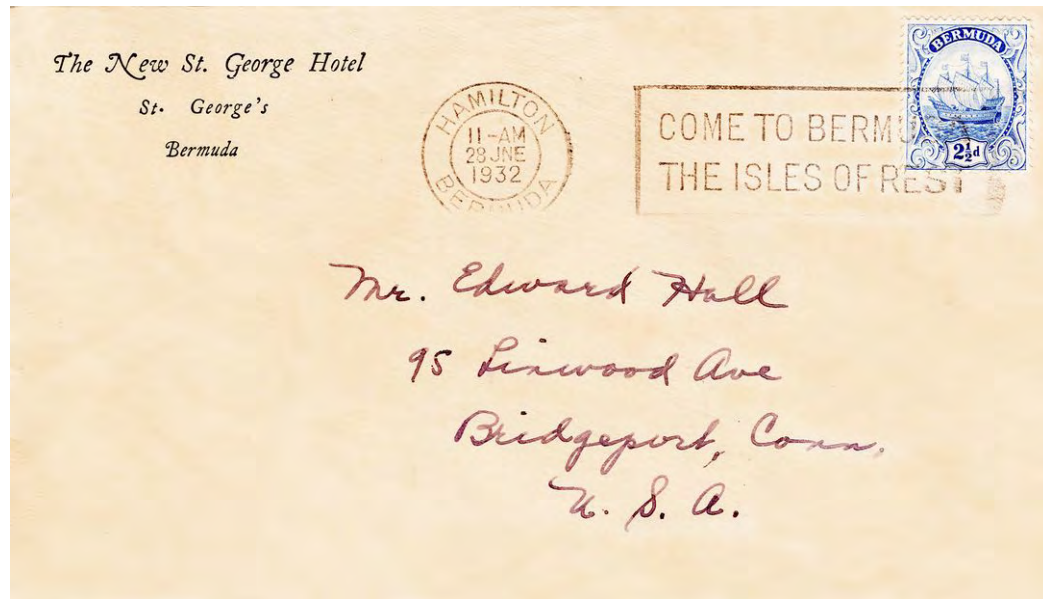 The New St. George Hotel
St. George's
Bermuda
HAMILTON
11-AM
28 JNE
1932
BERMUDA
COME TO BERMU
THE ISLES OF REST
BERMUDA
2½d
Mr. Edward Hall
95 Linwood Ave
Bridgeport, Conn.
U. S. A.